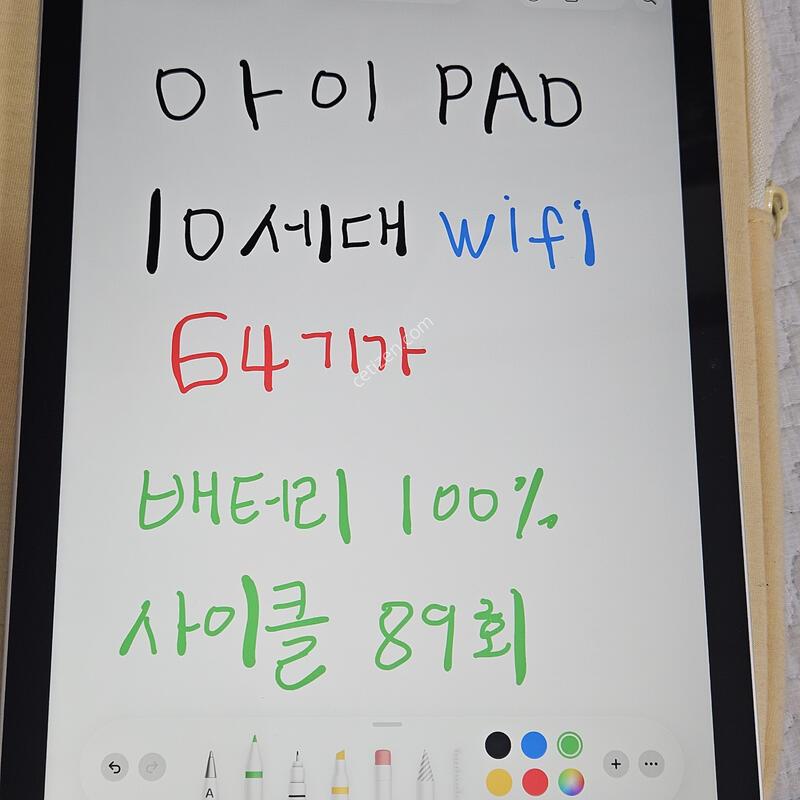 아이 PAD
10세대 wifi
64기가
cetizen.com
배터리 100%
사이클 89회
A